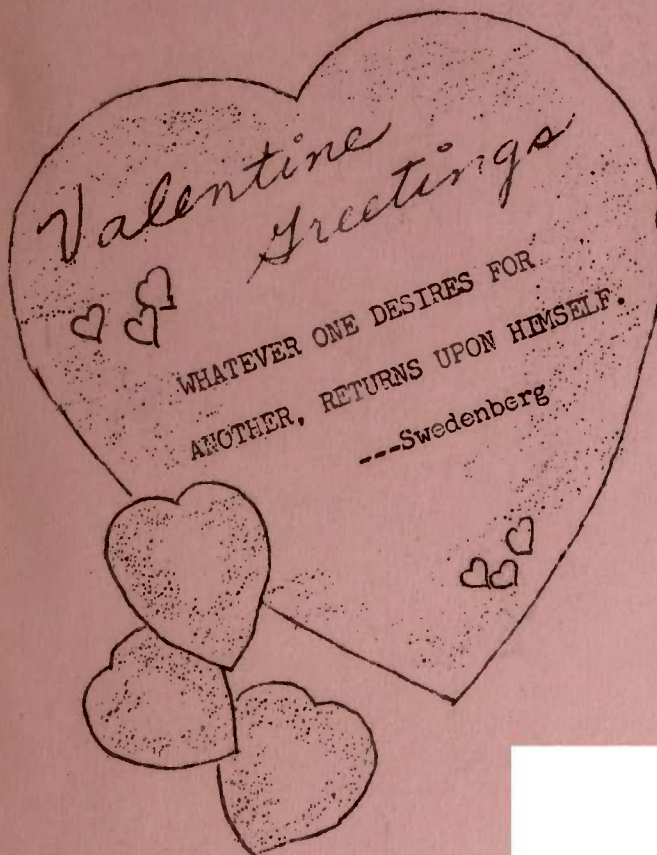 Valentine
Greetings
WHATEVER ONE DESIRES FOR
ANOTHER, RETURNS UPON HIMSELF.
---Swedenberg